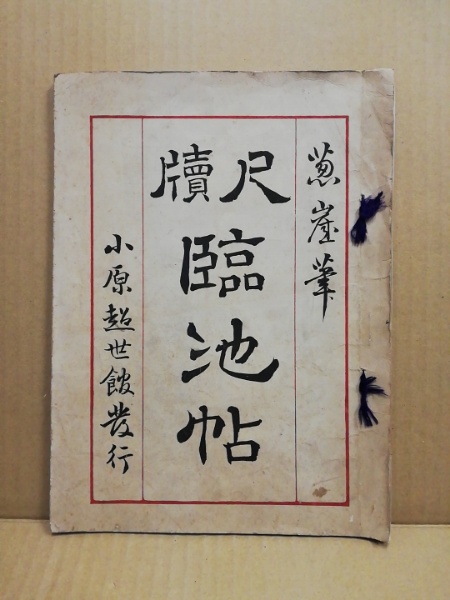 葱崖筆
尺牘
臨池帖
小原超世館發行